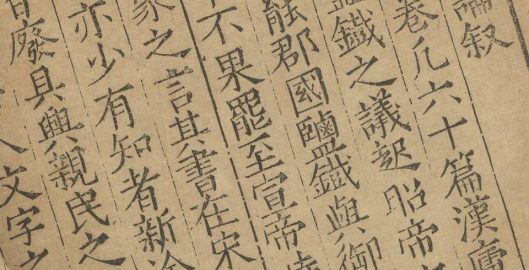 論叙
卷凡六十篇漢
鹽鐵之議起昭帝
郡國鹽鐵與御
不果罷至宣帝
家之言其書在宋
亦少有知者新
廢具興親民之
文字之